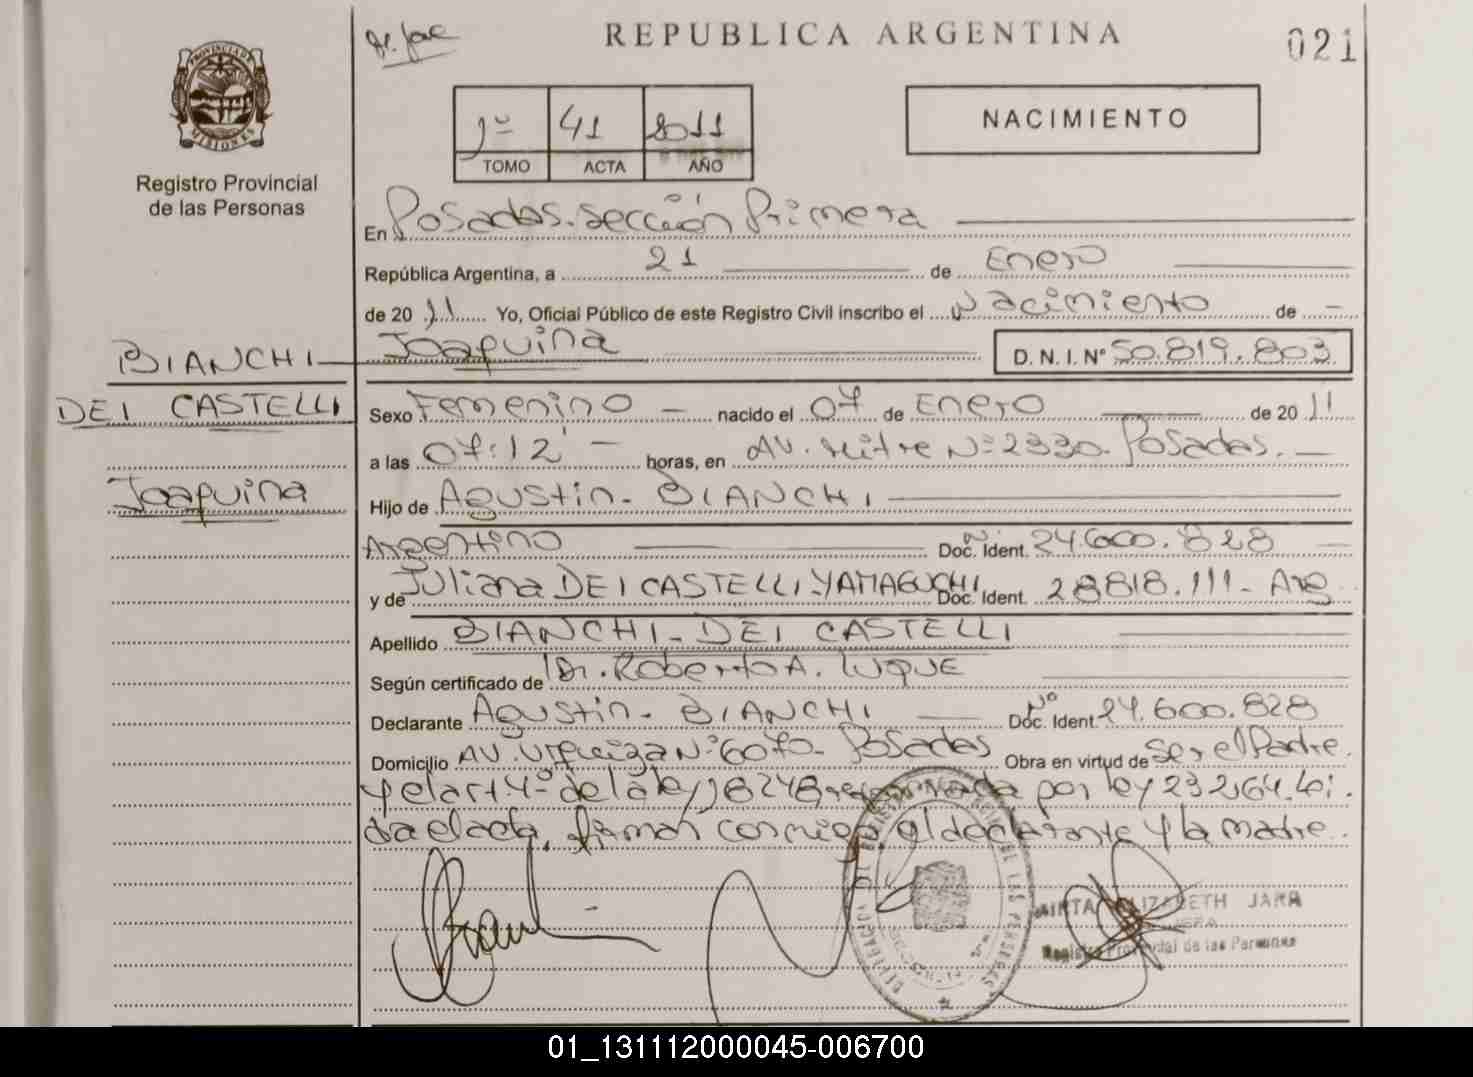 REPUBLICA ARGENTINA
021
PROVINCIA DE MISIONES
Registro Provincial
de las Personas
1º 41 2011
TOMO ACTA AÑO
NACIMIENTO
En Posadas. Sección Primera
República Argentina, a 21 de Enero
de 20 11 Yo, Oficial Público de este Registro Civil inscribo el Nacimiento de
BIANCHI Joaquina D. N. I. Nº 50.819.803
DEI CASTELLI
Joaquina
Sexo Femenino nacido el 07 de Enero de 20 11
a las 07:12' horas, en AV. Mitre Nº 2330. Posadas.
Hijo de Agustin - BIANCHI
Argentino Doc. Ident. Nº 24.600.828
y de Juliana DEI CASTELLI YAMAGUCHI Doc. Ident. 28818.111 - Arg
Apellido BIANCHI - DEI CASTELLI
Según certificado de Dr. Roberto A. LUQUE
Declarante Agustin - BIANCHI Doc. Ident. Nº 24.600.828
Domicilio AV. Urquiza Nº 6070 - Posadas Obra en virtud de Ser el Padre.
y el art 4º de la ley 18248 por ley 23.264. Lei
da el acta, firman conmigo el declarante y la madre.
MIRTA ELIZABETH JARA
JEFA
Registro Provincial de las Personas
01_131112000045-006700